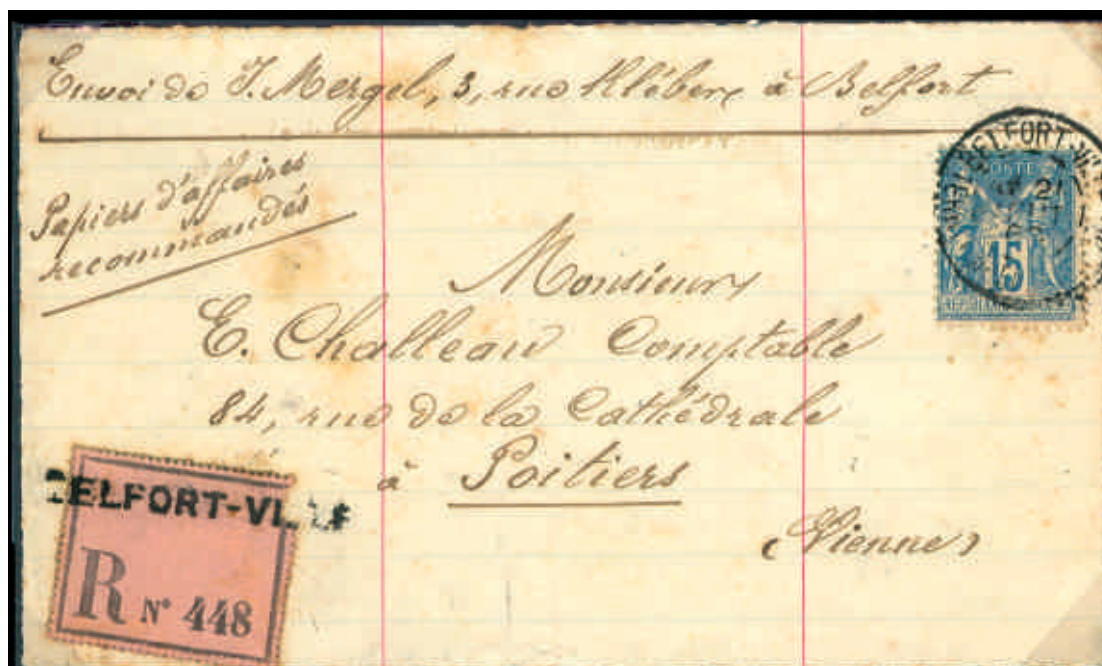 Envoi de J. Mergel, 3, rue Kléber à Belfort
Papiers d'affaires
recommandés
BELFORT-VILLE
POSTE
21
15
Monsieur
E. Challeau Comptable
84, rue de la Cathédrale
à Poitiers
(Vienne)
BELFORT-VILLE
R N° 448